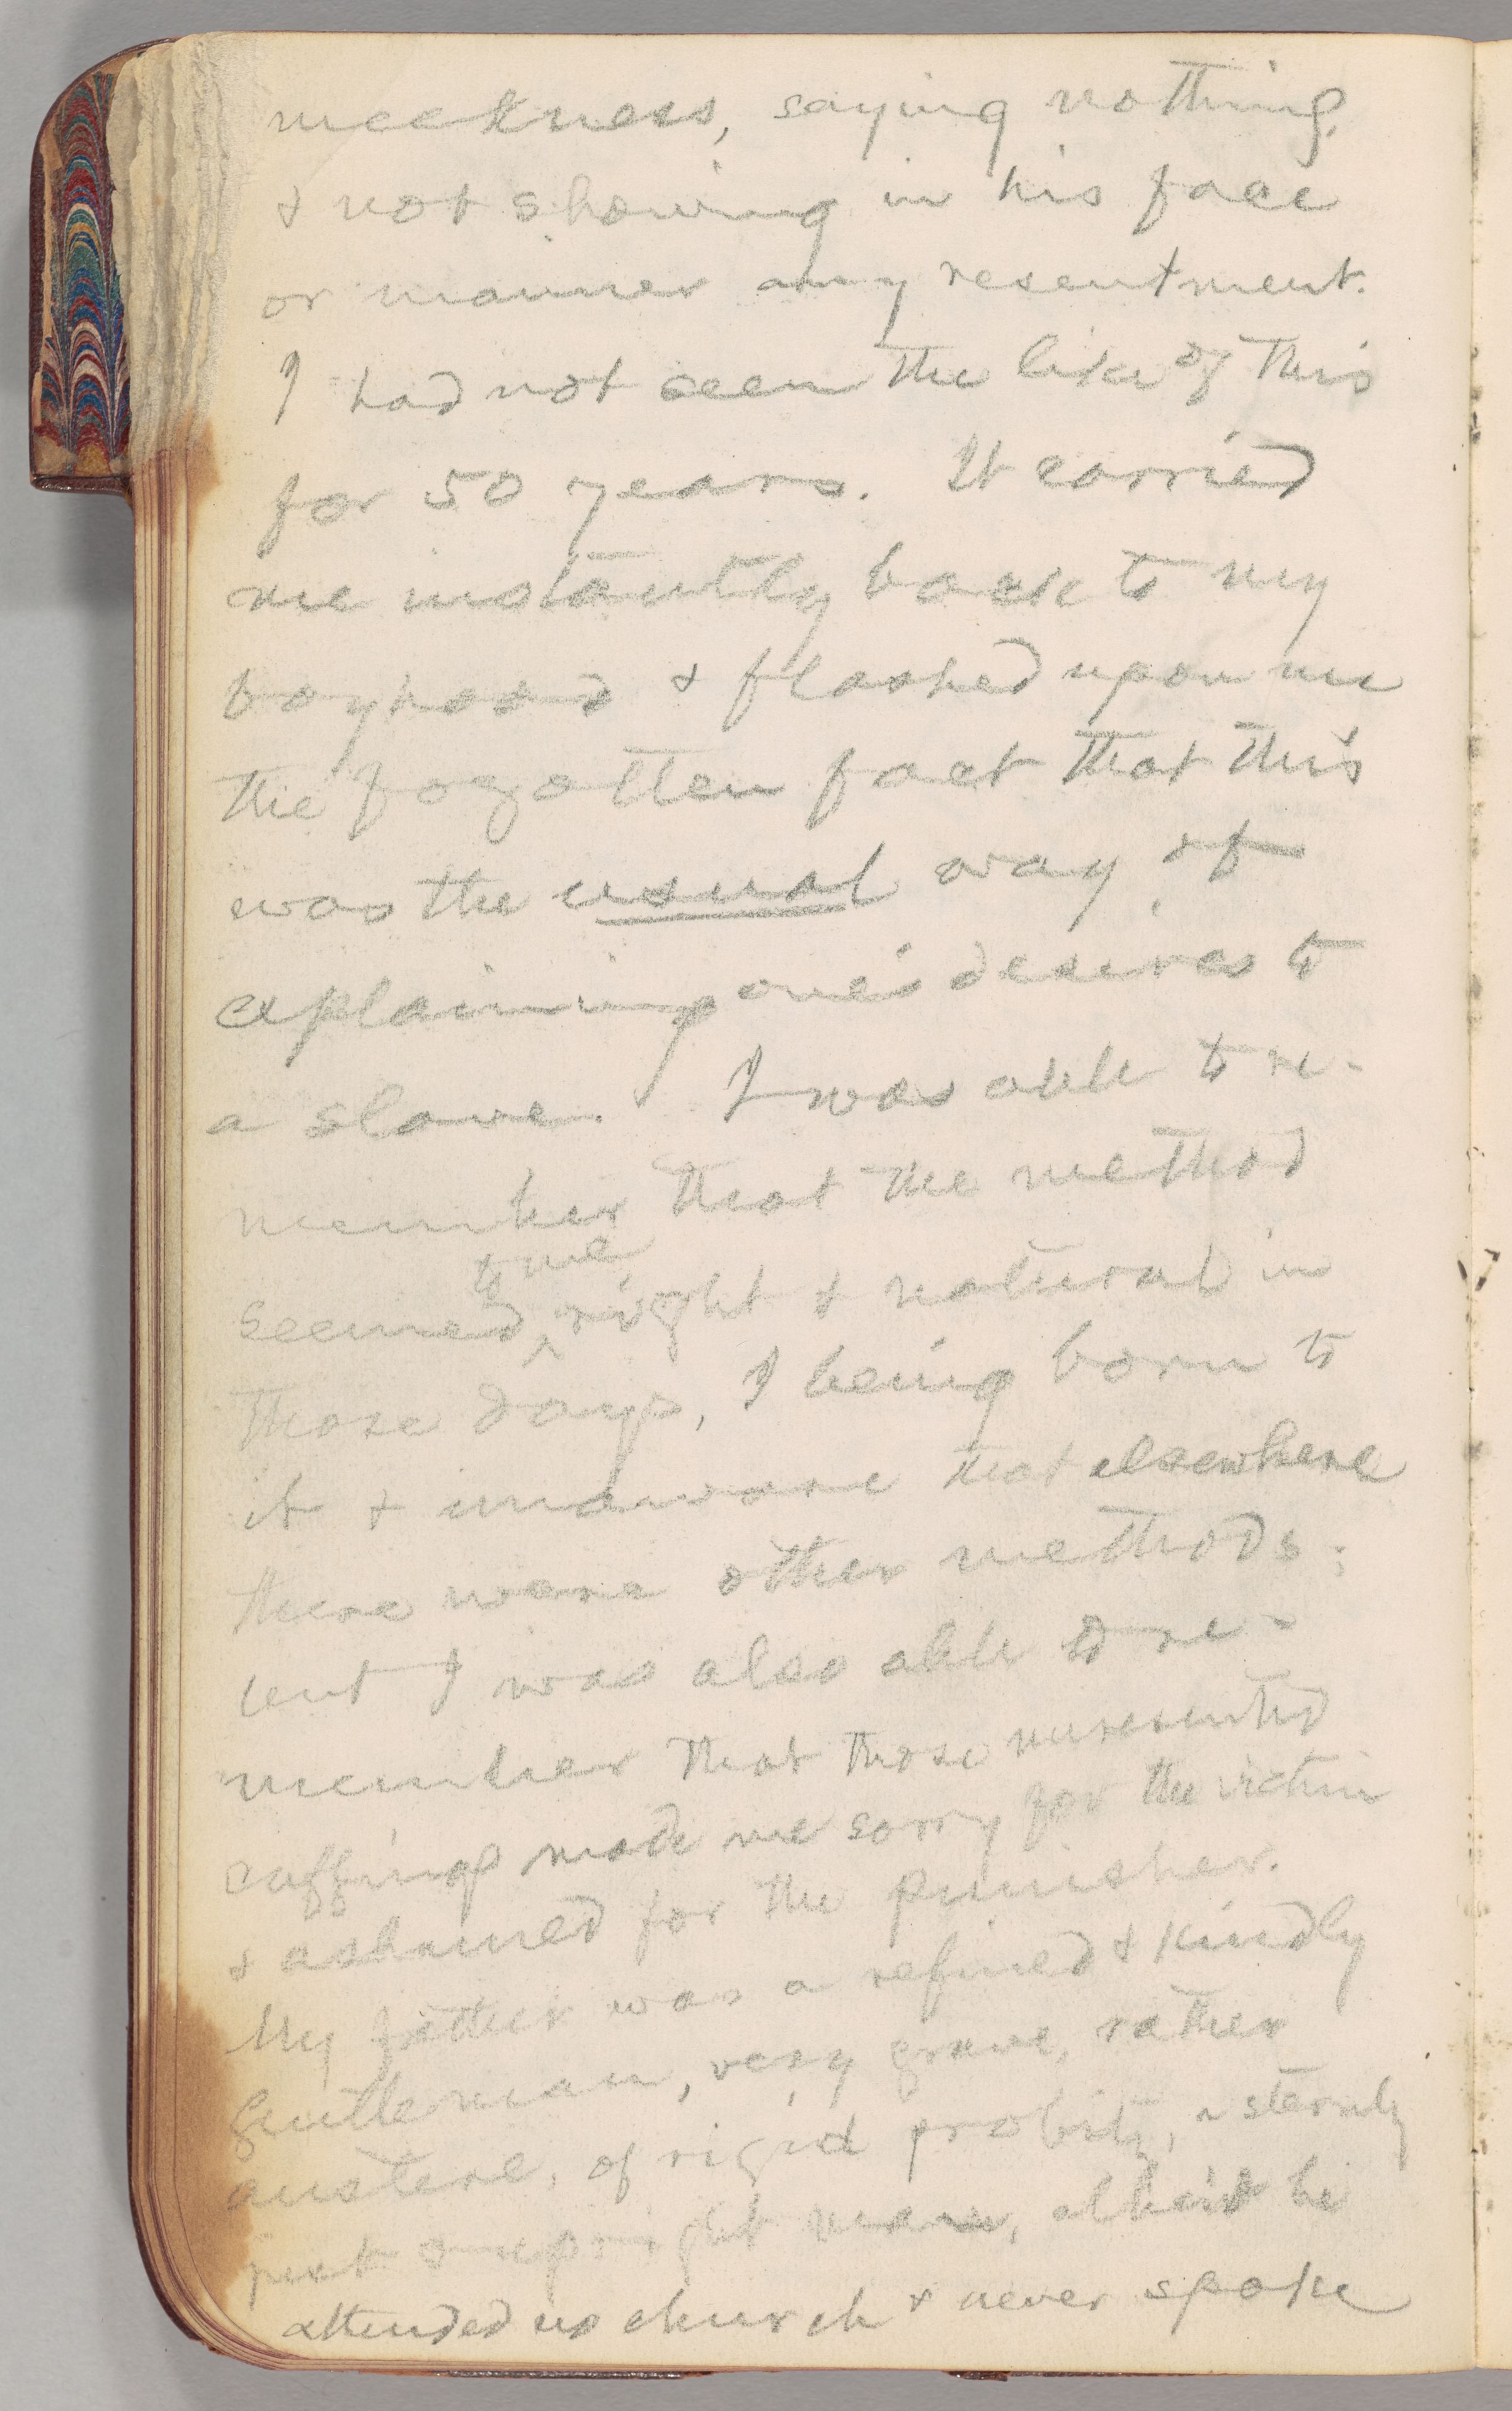 meekness, saying nothing,
& not showing in his face
or manner any resentment.
I had not seen the like of this
for 50 years. It carried
me instantly back to my
boyhood & flashed upon me
the fogotten fact that this
was the usual way of
explaining one's desires to
a slave. I was able to re-
member that the method
seemed to me right & natural in
those days, I being born to
it & unaware that elsewhere
there were other methods;
but I was also able to re-
member that those unresented
cuffings made me sorry for the victim
& ashamed for the punisher.
My father was a refined & kindly
gentleman, very grave, rather
austere, of rigid probity, a sternly
just & upright man, albeit he
attended no church & never spoke